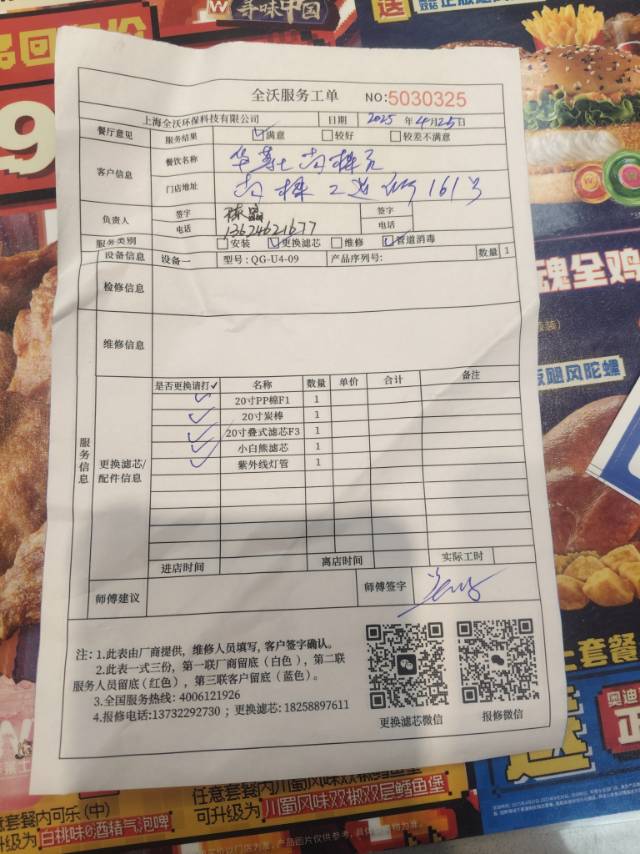 寻味中国
全沃服务工单 NO:5030325
上海全沃环保科技有限公司 日期 2025年4月25日
餐厅意见 服务结果 满意 较好 较差不满意
客户信息 餐饮名称
门店地址 161号
负责人 签字 签字
电话 13624621677 电话
服务类别 安装 更换滤芯 维修 管道消毒
设备信息 设备一 型号:QG-U4-09 产品序列号: 数量 1
检修信息
维修信息
服务信息
更换滤芯/配件信息
是否更换请打✓ 名称 数量 单价 合计 备注
✓ 20寸PP棉F1 1
✓ 20寸炭棒 1
✓ 20寸叠式滤芯F3 1
✓ 小白熊滤芯 1
✓ 紫外线灯管 1
进店时间 离店时间 实际工时
师傅建议 师傅签字
注:1.此表由厂商提供,维修人员填写,客户签字确认。
2.此表一式三份,第一联厂商留底(白色),第二联
服务人员留底(红色),第三联客户留底(蓝色)。
3.全国服务热线:4006121926
4.报修电话:13732292730;更换滤芯:18258897611
更换滤芯微信 报修微信
魂全鸡
飓风陀螺
套餐
奥迪
套餐内可乐(中)
可升级为 白桃味酒精气泡啤
任意套餐内川蜀风味双椒双层鳕鱼堡
可升级为 川蜀风味双椒双层鳕鱼堡